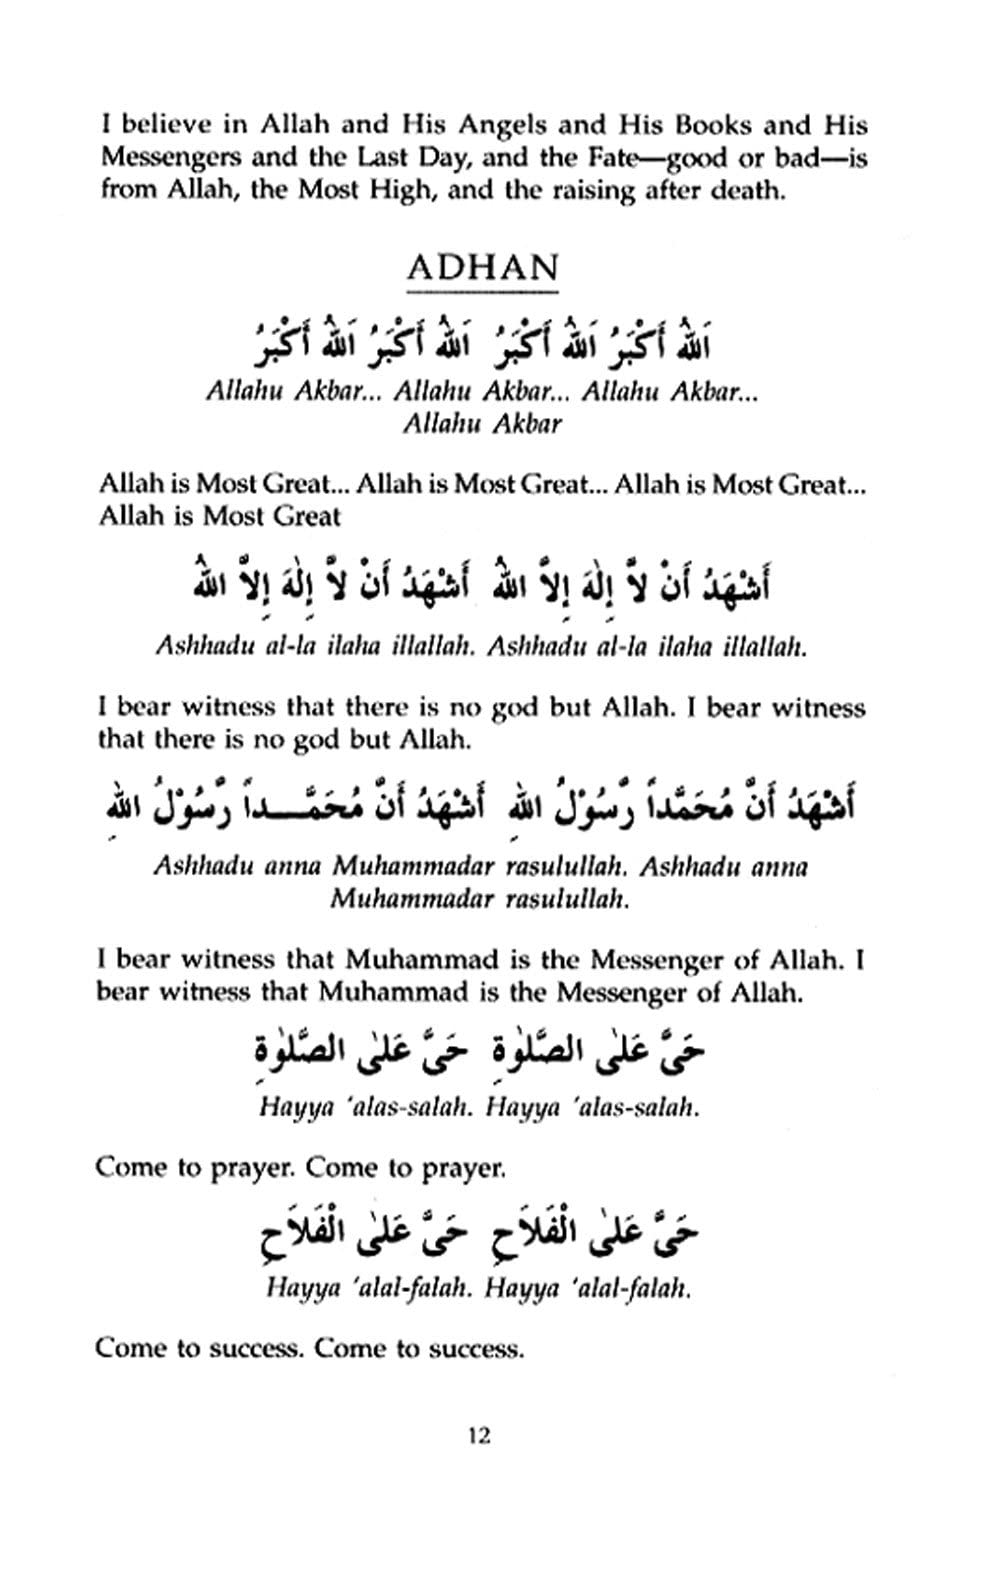 I believe in Allah and His Angels and His Books and His
Messengers and the Last Day, and the Fate—good or bad—is
from Allah, the Most High, and the raising after death.
ADHAN
اَللهُ أَكْبَرُ اَللهُ أَكْبَرُ اَللهُ أَكْبَرُ اَللهُ أَكْبَرُ
Allahu Akbar... Allahu Akbar... Allahu Akbar...
Allahu Akbar
Allah is Most Great... Allah is Most Great... Allah is Most Great...
Allah is Most Great
أَشْهَدُ أَنْ لاَّ إِلٰهَ إِلاَّ اللهُ أَشْهَدُ أَنْ لاَّ إِلٰهَ إِلاَّ اللهُ
Ashhadu al-la ilaha illallah. Ashhadu al-la ilaha illallah.
I bear witness that there is no god but Allah. I bear witness
that there is no god but Allah.
أَشْهَدُ أَنَّ مُحَمَّداً رَّسُوْلُ اللهِ أَشْهَدُ أَنَّ مُحَمَّـــداً رَّسُوْلُ اللهِ
Ashhadu anna Muhammadar rasulullah. Ashhadu anna
Muhammadar rasulullah.
I bear witness that Muhammad is the Messenger of Allah. I
bear witness that Muhammad is the Messenger of Allah.
حَىَّ عَلٰى الصَّلوٰةِ حَىَّ عَلٰى الصَّلوٰةِ
Hayya 'alas-salah. Hayya 'alas-salah.
Come to prayer. Come to prayer.
حَىَّ عَلٰى الْفَلاَحِ حَىَّ عَلٰى الْفَلاَحِ
Hayya 'alal-falah. Hayya 'alal-falah.
Come to success. Come to success.
12